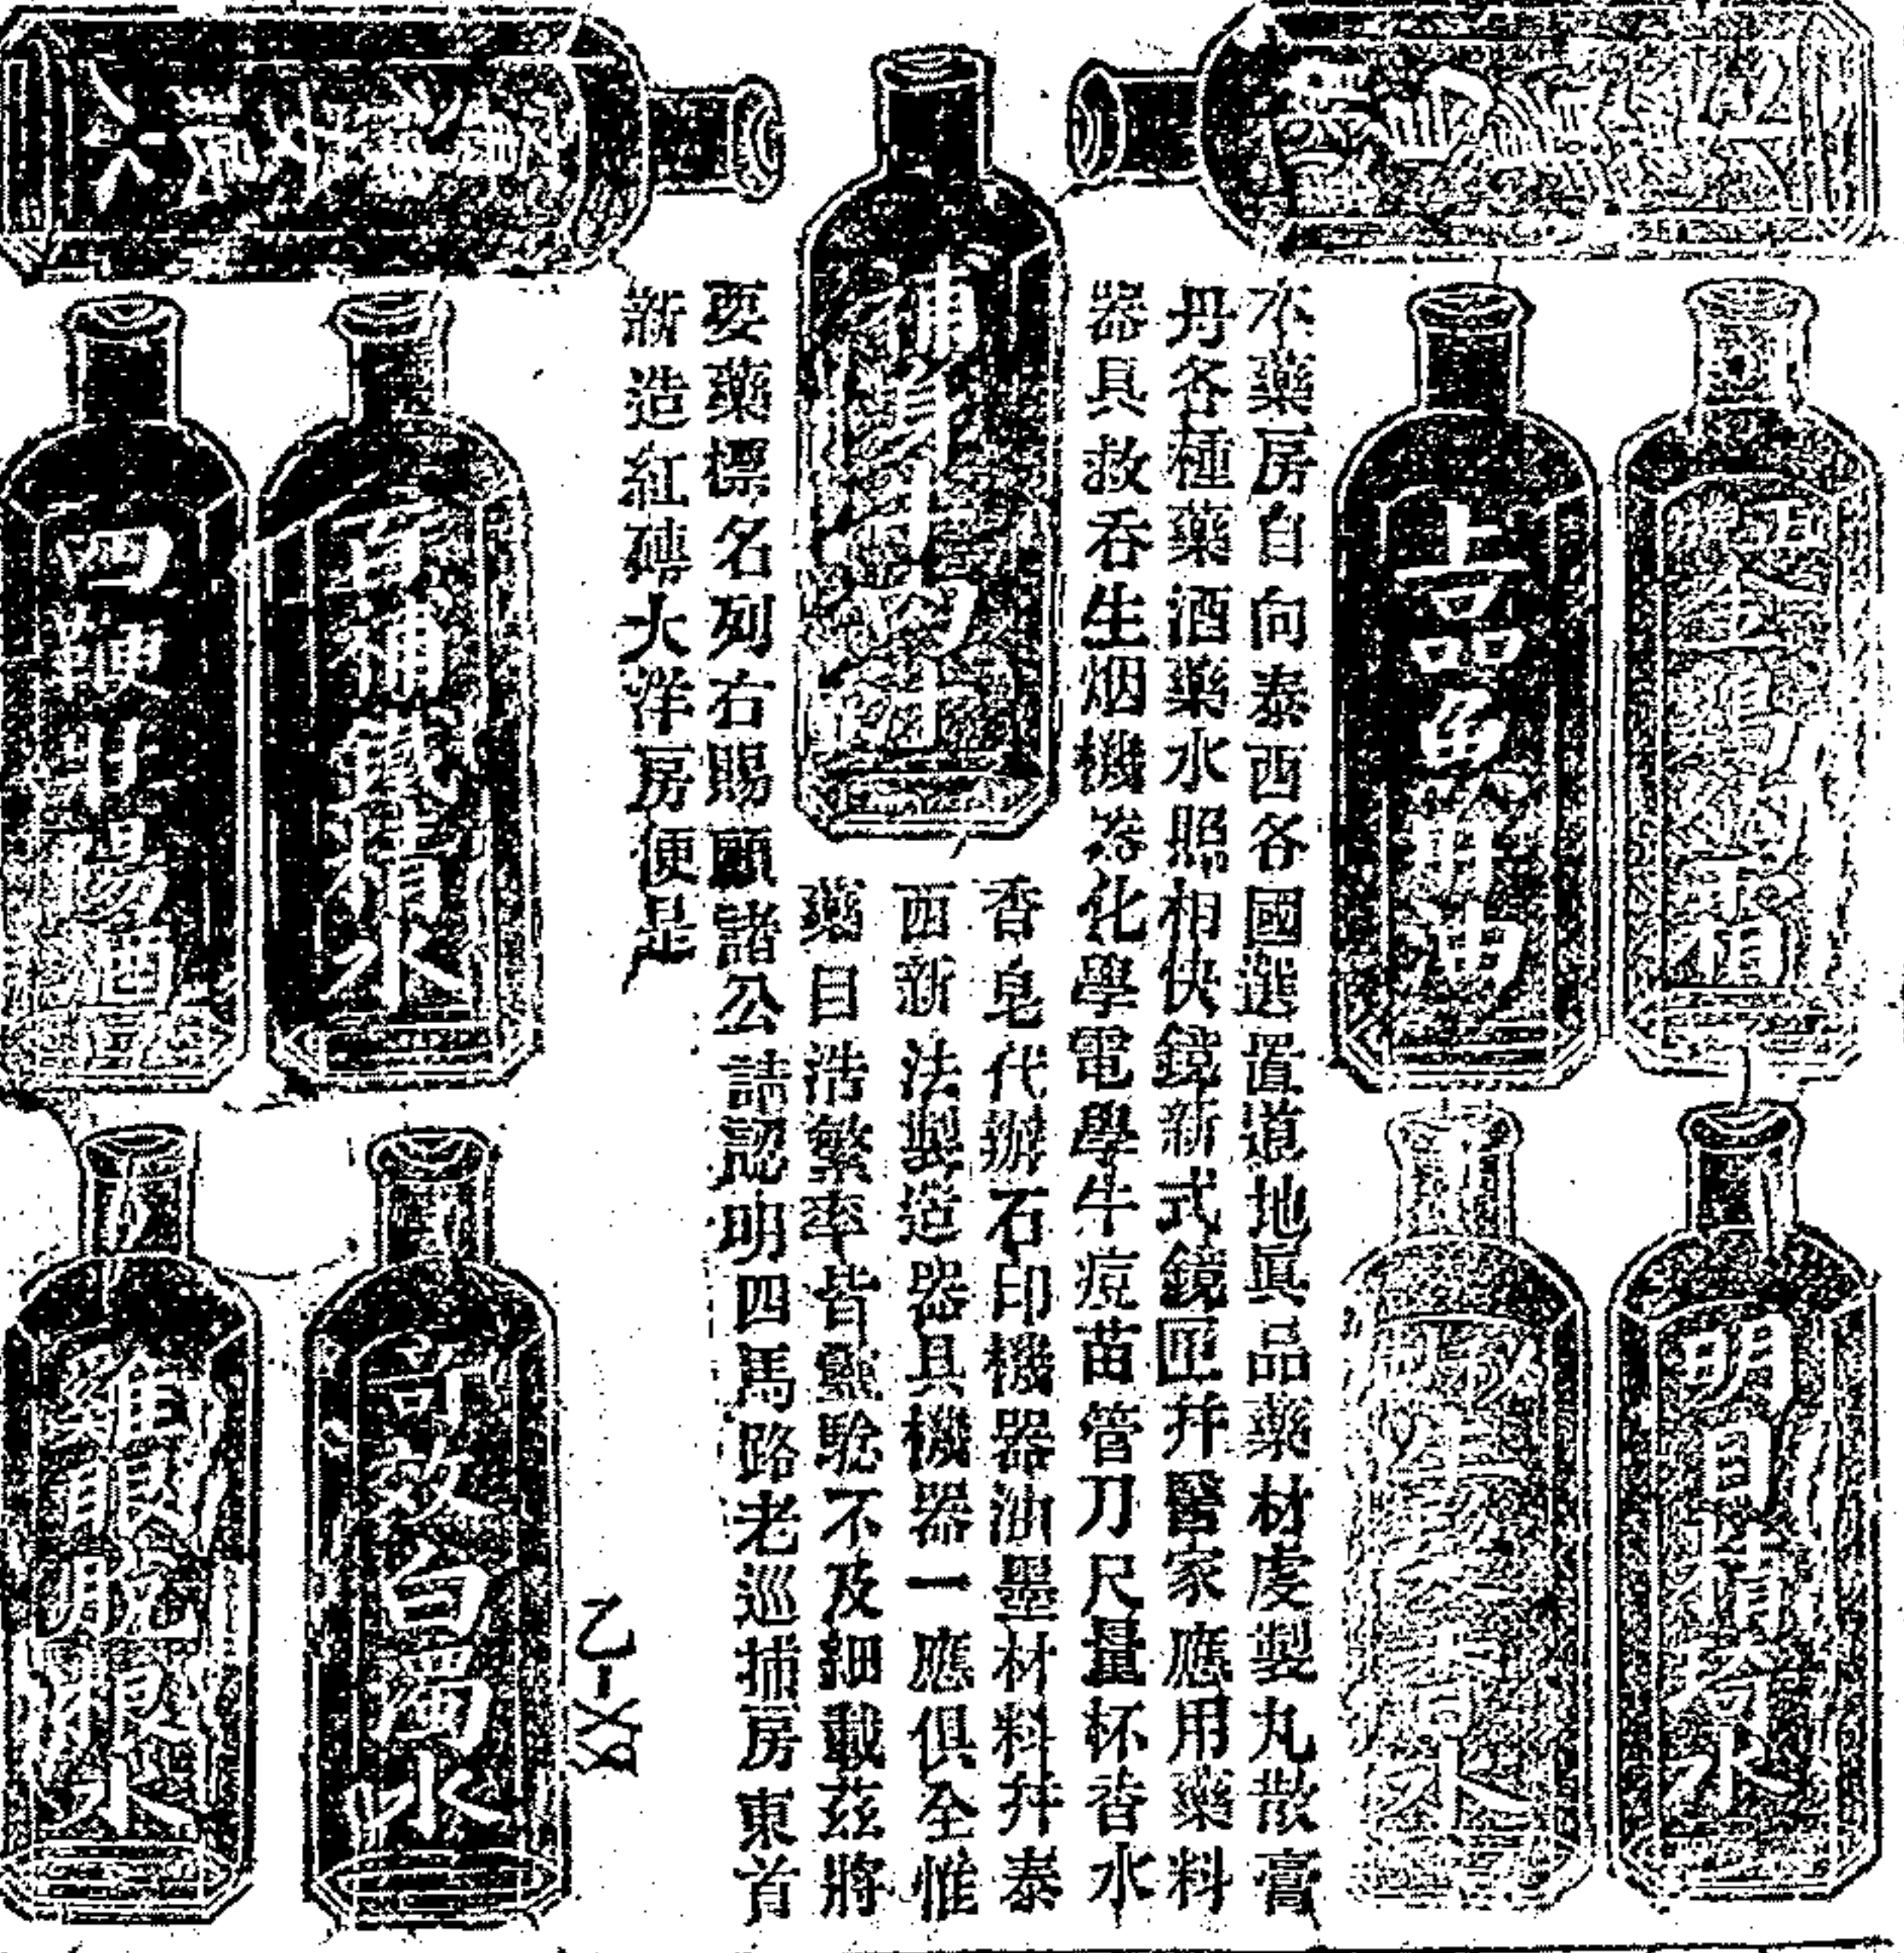 上品魚肝油
明目精奇水
本藥房自向泰西各國選置道地眞品藥材虔製丸散膏
丹各種藥酒藥水照相快鏡新式鏡匣幷醫家應用藥料
器具救吞生烟機器化學電學牛痘苗管刀尺量杯香水
香皂代辦石印機器油墨材料幷泰
西新法製造器具機器一應俱全惟
藥目浩繁率皆靈騐不及細載茲將
要藥標名列右賜顧諸公請認明四馬路老巡捕房東首
新造紅磚大洋房便是
百補鐵精水
奇效白濁水
四鞭壯陽酒
雞眼脫根水
乙